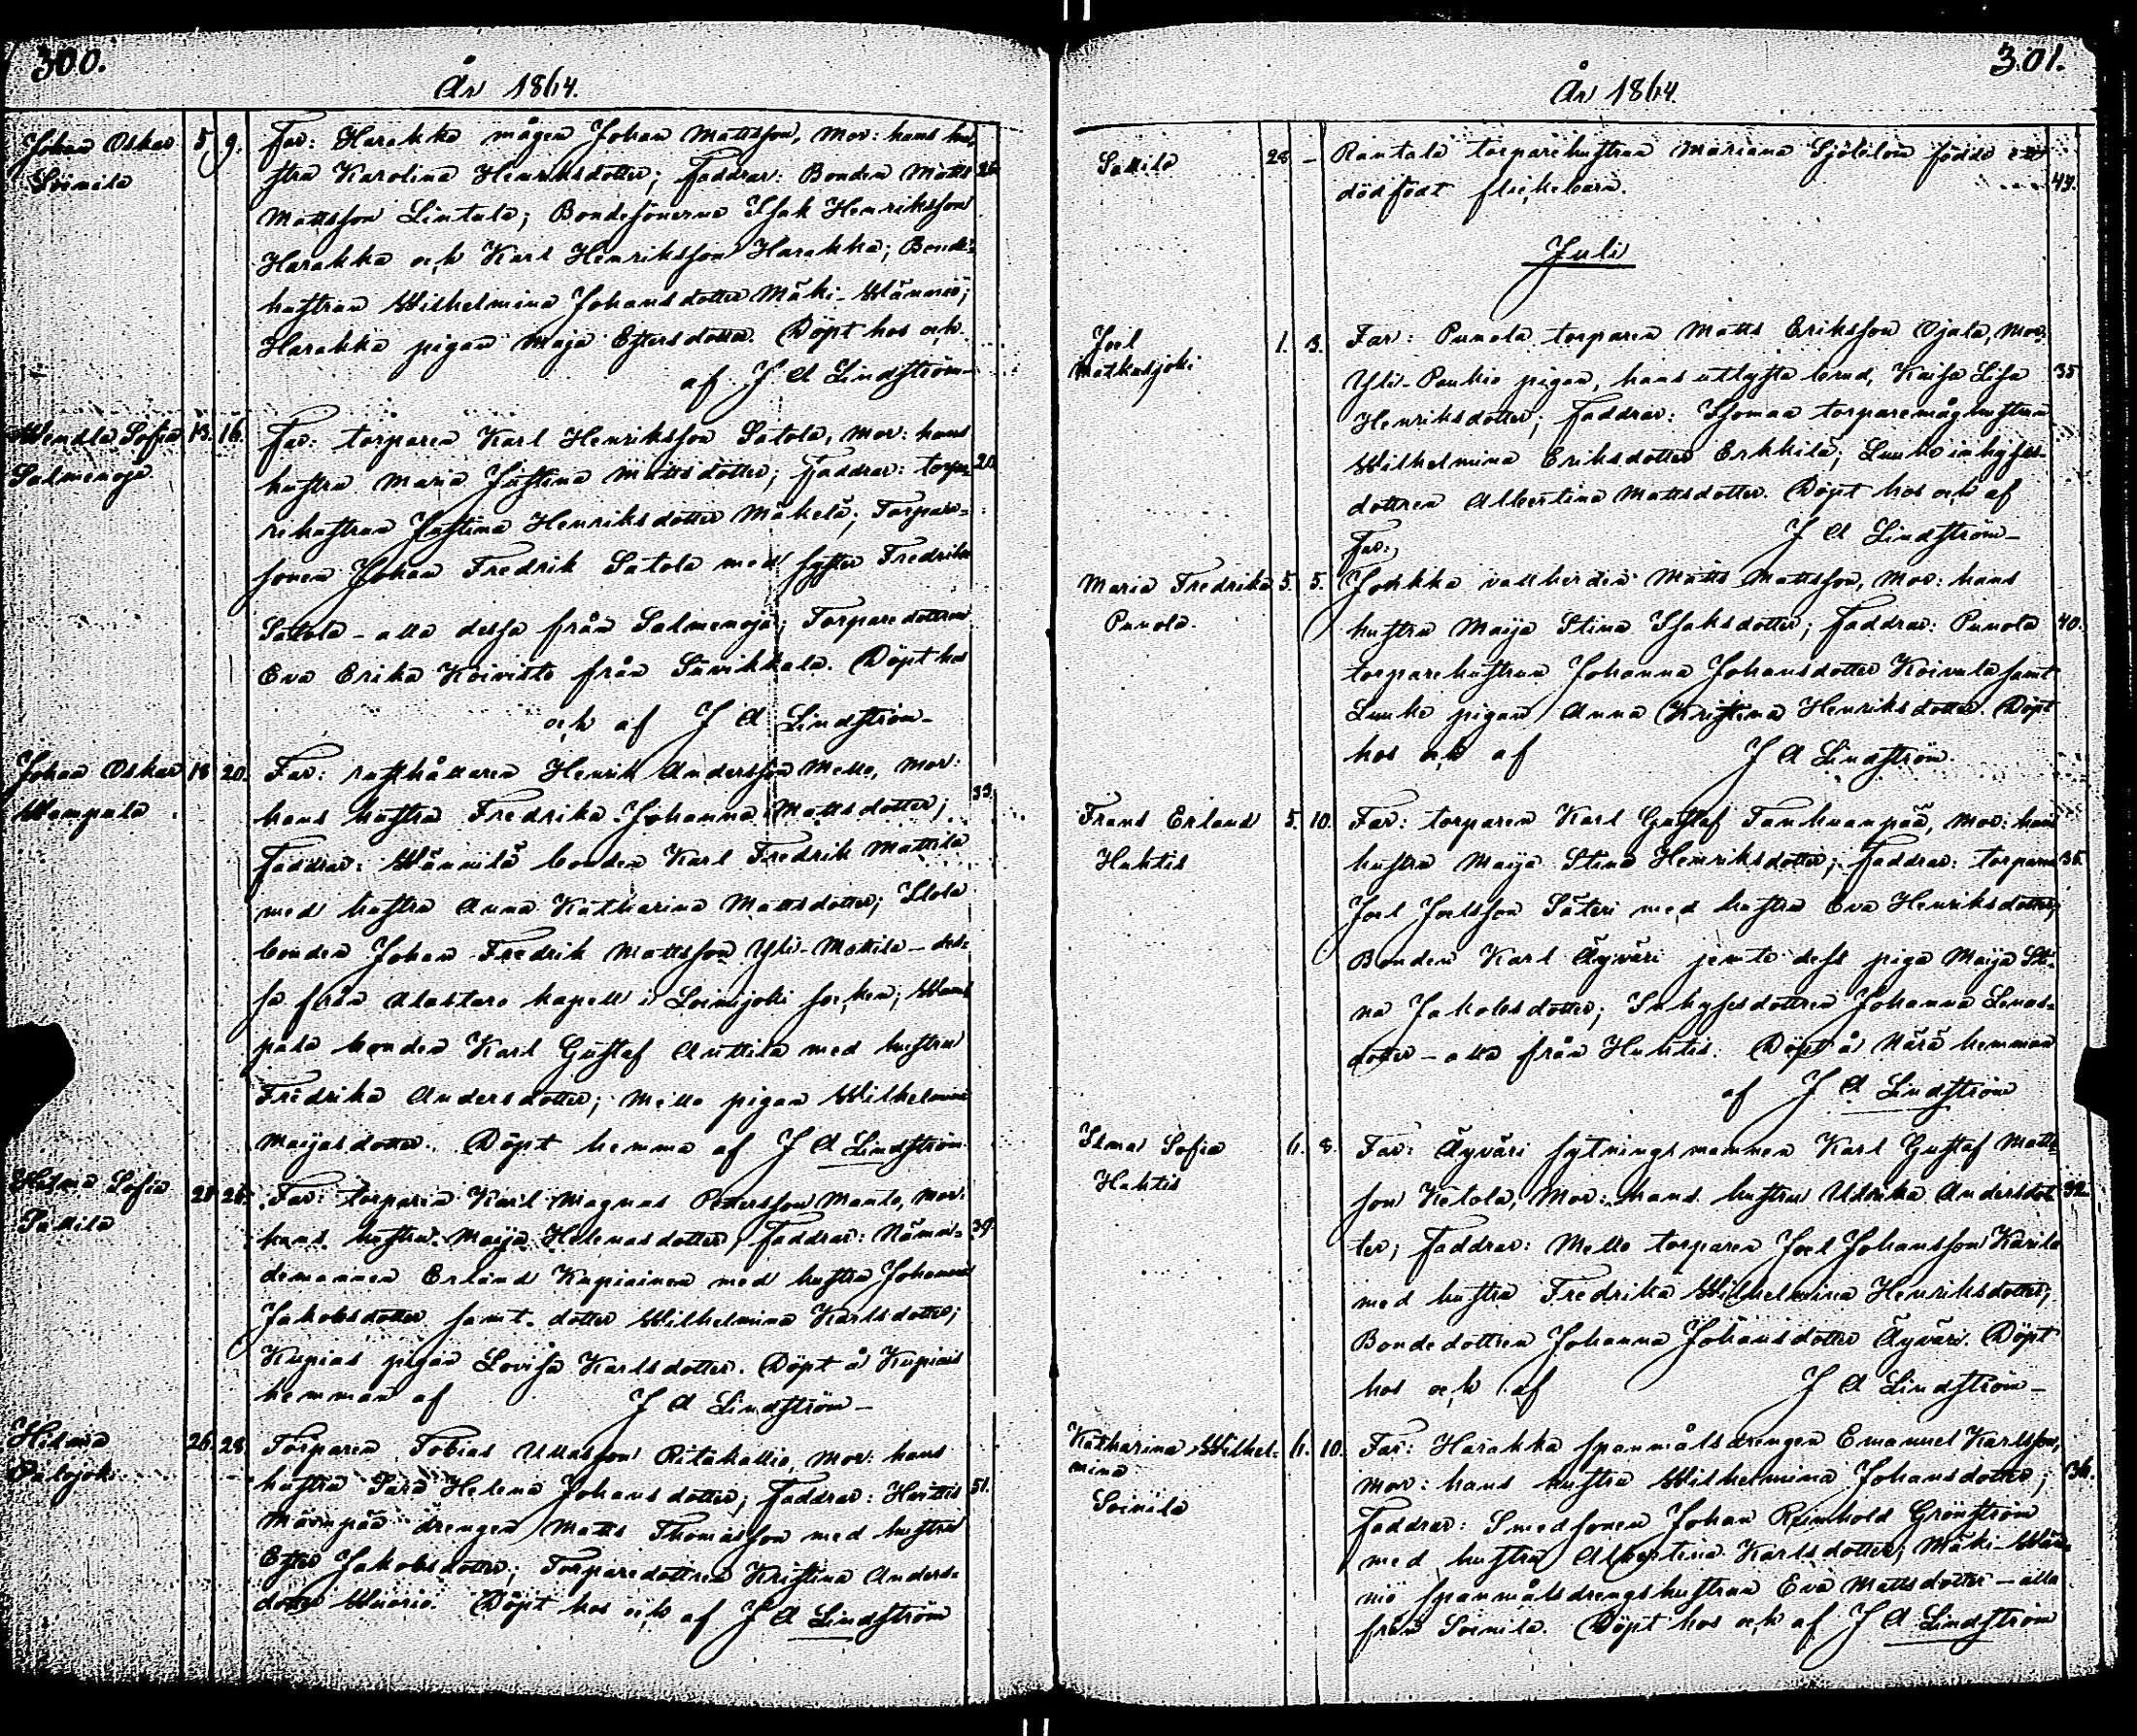 300.
År 1864.
Johan Oskar 5 9. Far: Harakka mågen Johan Mattsson, Mor: hans hu-
Soinila stra Karolina Henriksdotter; Faddrar: Bonden Matts
Mattsson Lintula; Bondesönerna Isak Henriksson
Harakka och Karl Henriksson Harakka; Bonde-
hustrun Wilhelmina Johansdotter Mäki-Männiö;
Harakka pigan Maja Estersdotter. Döpt hos och
af J A Lindström
Wendla Sofia 13. 16. Far: torparen Karl Henriksson Satola, Mor: hans
Salmenoja hustru Maria Justina Mattsdotter; Faddrar: torpa- 20
rehustrun Justina Henriksdotter Mäkelä; Torpare-
sonen Johan Fredrik Satola med syster Fredrika
Satola - alla dessa från Salmenoja; Torparedottren
Eva Erika Koivisto från Suvikkala. Döpt hos
och af J A Lindström
Johan Oskar 18 20. Far: rusthållaren Henrik Andersson Mello, Mor:
Wampula hans hustru Fredrika Johanna Mattsdotter; 33.
Faddrar: Männilä bonden Karl Fredrik Mattila
med hustru Anna Katharina Mattsdotter;
bonden Johan Fredrik Mattsson Yli-Mattila - des-
sa från Alastaro kapell i Loimijoki socken; Wam-
pula bonden Karl Gustaf Anttila med hustru
Fredrika Andersdotter; Mello pigan Wilhelmina
Maijasdotter. Döpt hemma af J A Lindström
Sofia Far: torparen Karl Magnus Pettersson Manto, Mor:
hans hustru Maija Helenasdotter; Faddrar: Näm- 39.
demannen Erland Kupiainen med hustru Johanna
Jakobsdotter samt dotter Wilhelmina Karlsdotter;
Kupias pigan Lovisa Karlsdotter. Döpt å Kupiais
hemman af J A Lindström
Hilma 26. 28. Torparen Tobias Ritakallio, Mor: hans
hustru Sara Helena Johansdotter; Faddrar: 51.
drengen Matts Thomasson med hustru
Ester Jakobsdotter; Torparedottren Kristina Anders-
dotter Döpt hos och af J A Lindström
301.
År 1864.
28 - Rantala torparehustrun Mariana Sjöblom födde ett
dödfödt flickebarn. 44.
Juli
Joel 1. 3. Far: Punola torparen Matts Eriksson Ojala, Mor:
Matkusjoki Yli-Punkio pigan, hans utlysta brud, Kaisa Lisa 35
Henriksdotter; Faddrar: Isomaa torparemåghustrun
Wilhelmina Eriksdotter Erkkilä; inhyses-
dottren Albertina Mattsdotter. Döpt hos och af
J A Lindström
Far:
Maria Fredrika 5. 5. Jokkka vallherden Matts Mattsson, Mor: hans
Punola. hustru Maija Stina Isaksdotter; Faddrar: Punola 40.
torparehustrun Johanna Johansdotter Koivula samt
pigan Anna Kristina Henriksdotter. Döpt
hos och af J A Lindström.
Frans Erland 5. 10. Far: torparen Karl Gustaf Tanhuanpää, Mor: hans
Huhtis hustru Maija Stina Henriksdotter; Faddrar: torparen 35.
Joel Joelsson Säteri med hustru Eva Henriksdotter;
Bonden Karl Äyväri jemte dess piga Maija Sti-
na Jakobsdotter; Inhysesdottren Johanna Lenas-
dotter - alla från Huhtis. Döpt å Närä hemman
af J A Lindström
Ilma Sofia 6. 8. Far: Äyväri sytningsmannen Karl Gustaf Matts-
Huhtis son Ketola, Mor: hans hustru Ulrika Andersdot- 32
ter; Faddrar: Mello torparen Joel Johansson Karila
med hustru Fredrika Wilhelmina Henriksdotter;
Bondedottren Johanna Johansdotter Äyväri. Döpt
hos och af J A Lindström
Katharina Wilhel- 6. 10. Far: Harakka spanmålsdrengen Emanuel Karlsson,
mina Mor: hans hustru Wilhelmina Johansdotter; 36.
Soinila Faddrar: Smedsonen Johan Reinhold Grönström
med hustru Albertina Karlsdotter; Mäki-Män-
niö spanmålsdrengshustrun Eva Mattsdotter - alla
från Soinila. Döpt hos och af J A Lindström